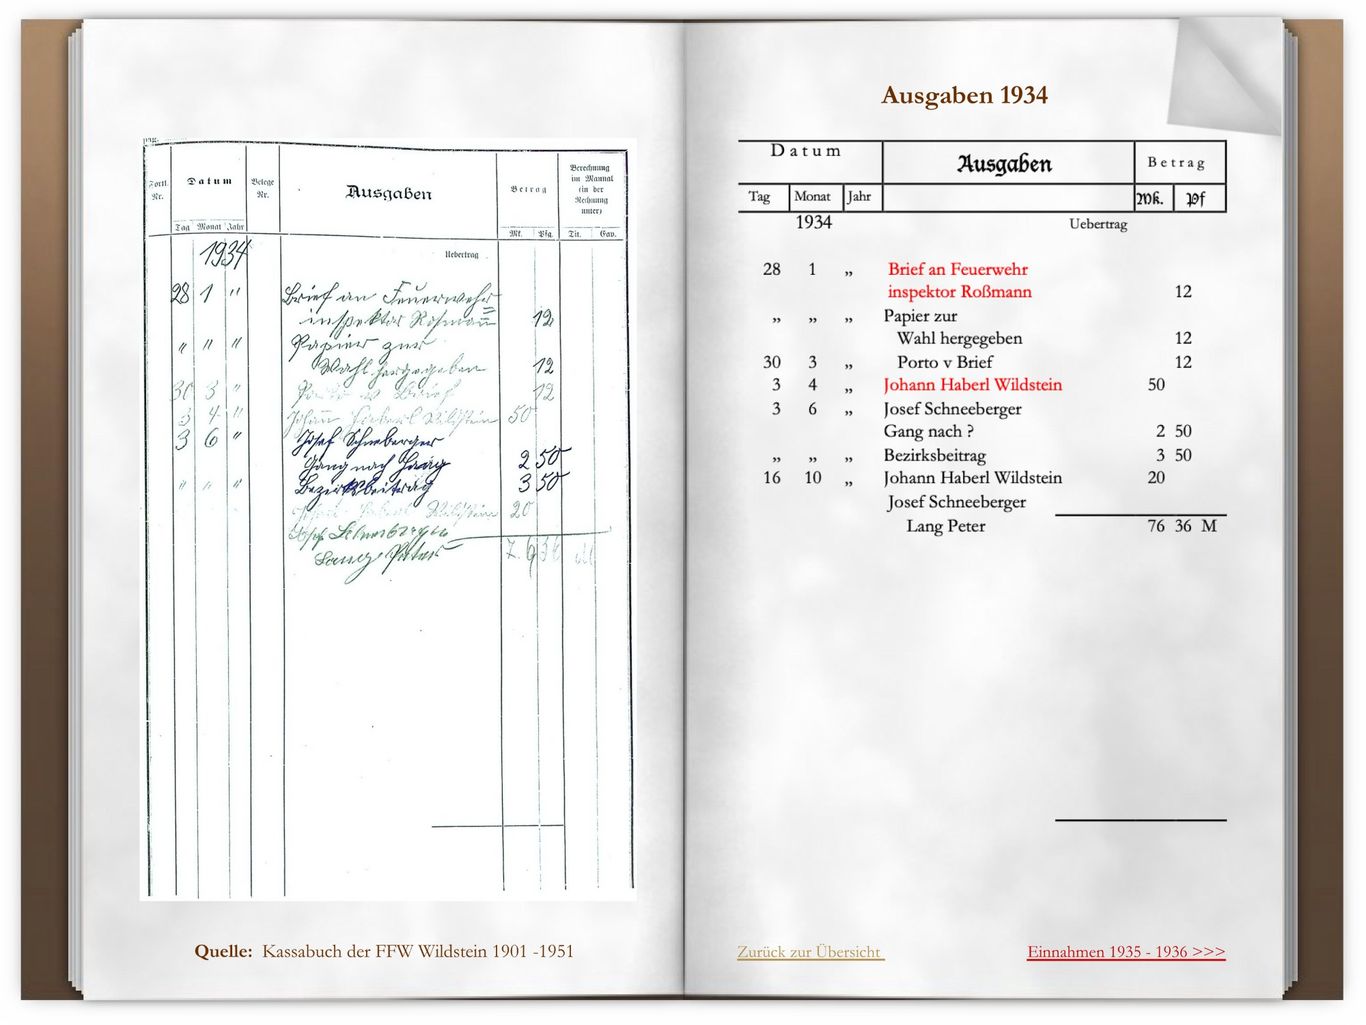 Fortl. Nr.
Datum
Belege Nr.
Ausgaben
Betrag
Berechnung
im Manual
(in der
Rechnung
unter)
Tag Monat Jahr
Mk. Pfg. Tit. Gav.
1934
Uebertrag
28 1 "
Brief an Feuerwehr=
inspektor Roßmann 12
" " " Papier zur
Wahl hergegeben 12
30 3 " Porto v Brief 12
3 4 " Johann Haberl Wildstein 50
3 6 " Josef Schneeberger
Gang nach 2 50
" " " Bezirksbeitrag 3 50
Johann Haberl Wildstein 20
Josef Schneeberger
Lang Peter 76 36 M
Quelle: Kassabuch der FFW Wildstein 1901 -1951
Ausgaben 1934
Datum Ausgaben Betrag
Tag Monat Jahr Mk. Pf
1934 Uebertrag
28 1 „ Brief an Feuerwehr
inspektor Roßmann 12
„ „ „ Papier zur
Wahl hergegeben 12
30 3 „ Porto v Brief 12
3 4 „ Johann Haberl Wildstein 50
3 6 „ Josef Schneeberger
Gang nach ? 2 50
„ „ „ Bezirksbeitrag 3 50
16 10 „ Johann Haberl Wildstein 20
Josef Schneeberger
Lang Peter 76 36 M
Zurück zur Übersicht
Einnahmen 1935 - 1936 >>>